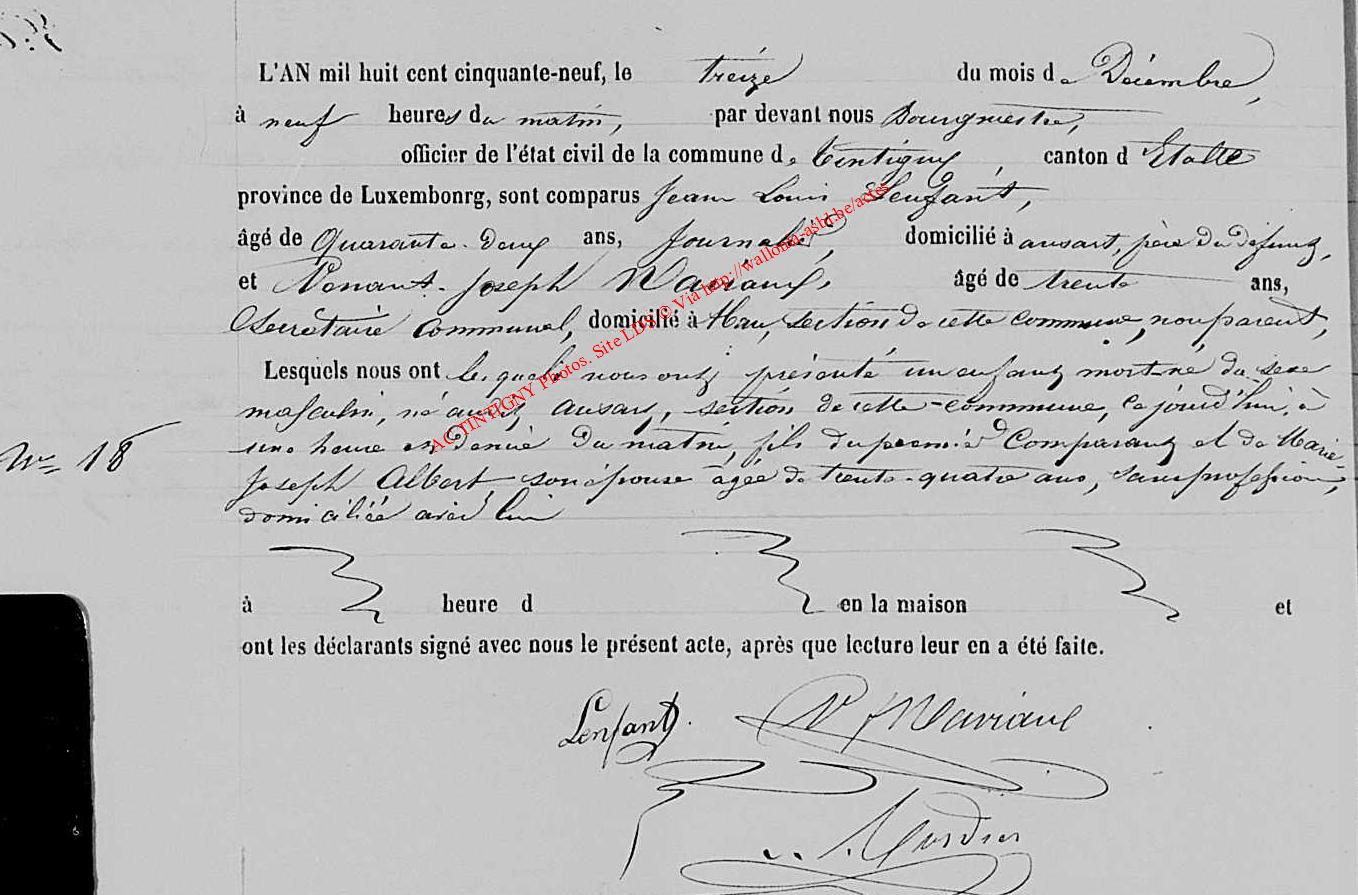 L'AN mil huit cent cinquante-neuf, le treize du mois de Décembre,
à neuf heures du matin, par devant nous Bourgmestre,
officier de l'état civil de la commune de Tintigny, canton d'Etalle
province de Luxembonrg, sont comparus Jean Louis Lenfant,
âgé de Quarante-deux ans, Journalier, domicilié à ansart, père du défunt,
et Venant-Joseph Mariaux, âgé de trente ans,
Secrétaire communal, domicilié à Han, section de cette commune, non parent,
Lesquels nous ont lesquels nous ont présenté un enfant mort-né du sexe
masculin, né audit Ansart, section de cette commune, ce jourd'hui, à
une heure et demie du matin, fils du premier Comparant et de Marie-
N° 18
Joseph Albert, son épouse âgée de trente-quatre ans, sans profession,
domiciliée avec lui
à heure d en la maison et
ont les déclarants signé avec nous le présent acte, après que lecture leur en a été faite.
Lenfant. V J Mariaux
ACTINTIGNY Photos. Site LDS © Via http://wallonia-asbl.be/actes